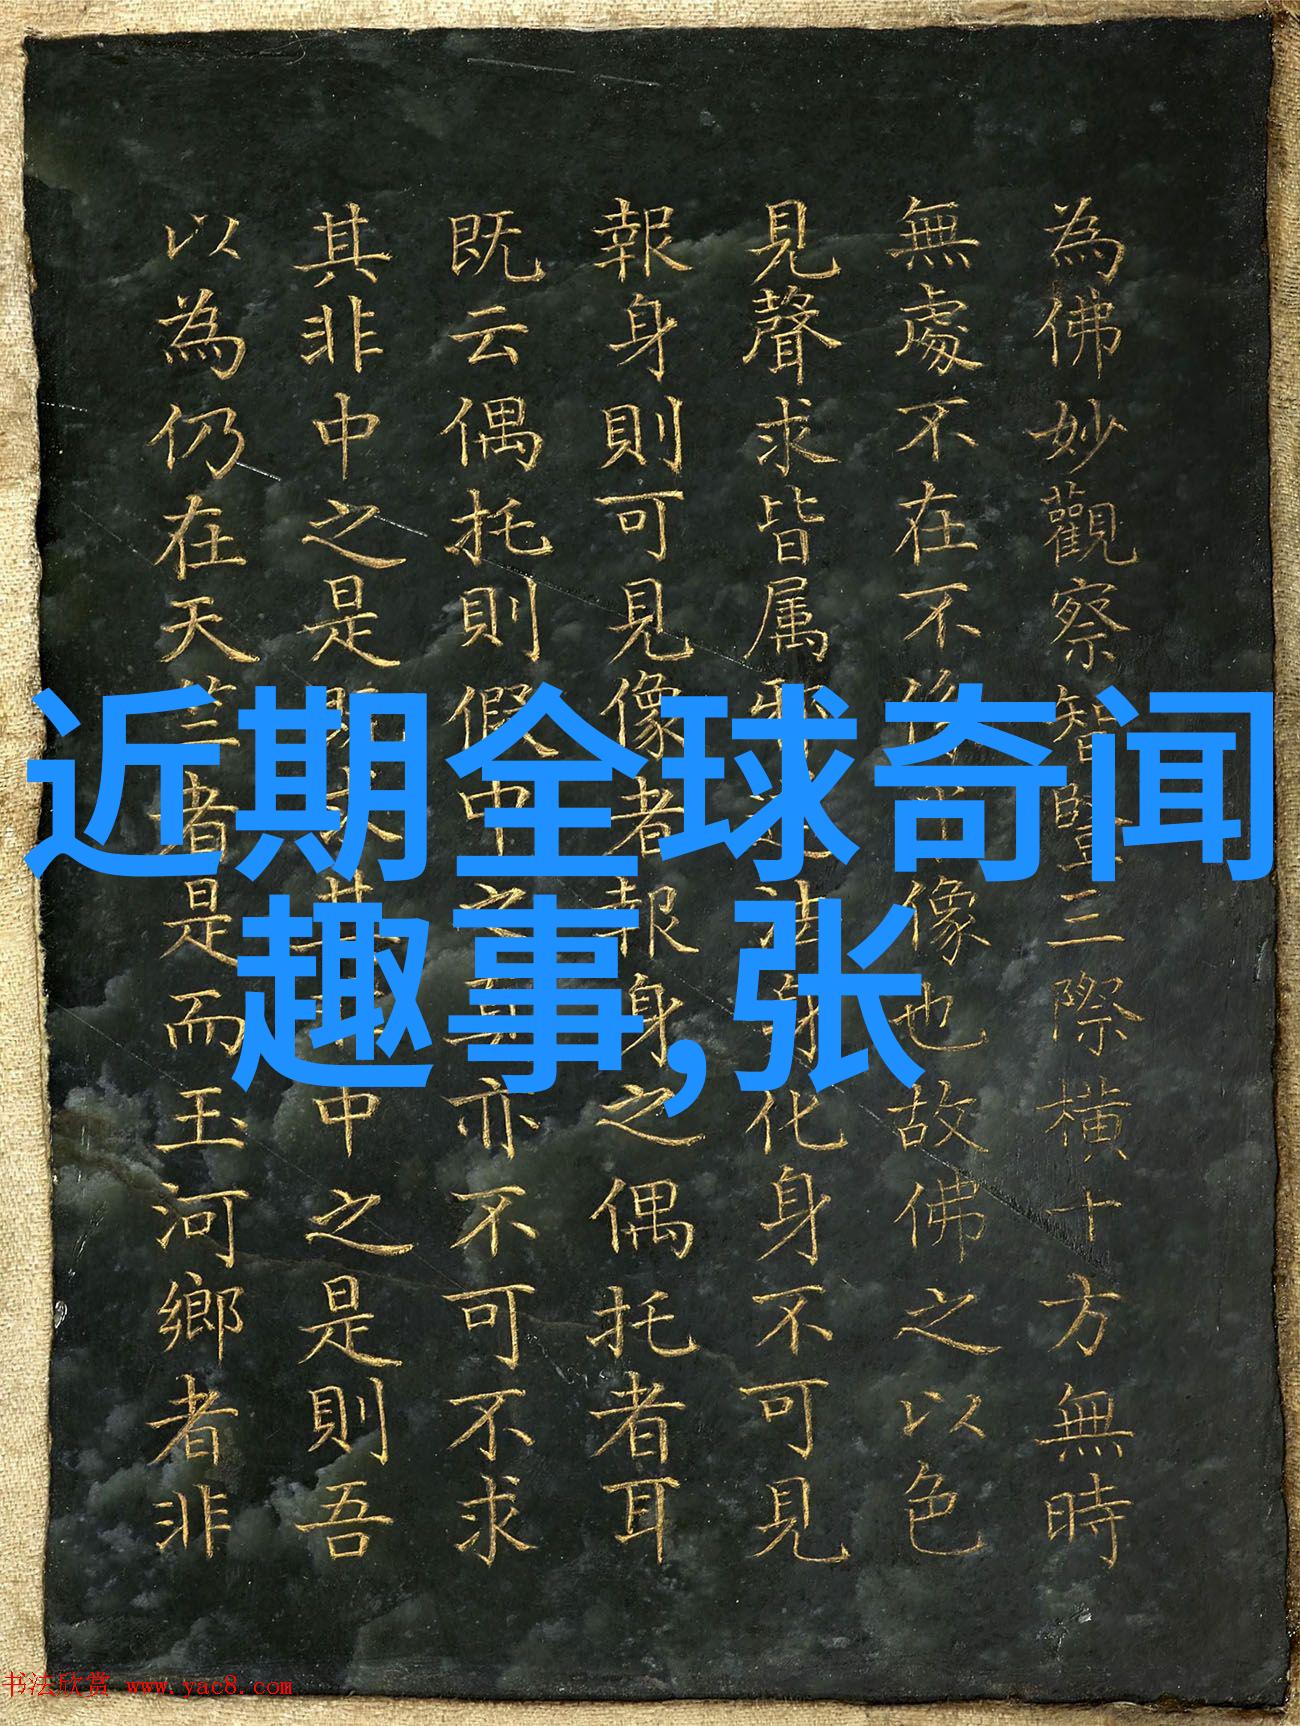 為佛妙觀察智豎三際橫十方無時
無處不在不像也故佛之以色
見聲求皆属法身化身不可見
報身則可見像者報身之偶托者耳
既云偶托則假中之亦不可不求
其非中之是其中之是則吾
以為仍在天竺者是而玉河鄉者非
近期全球奇闻
趣事,张
书法欣赏 www.yac8.com